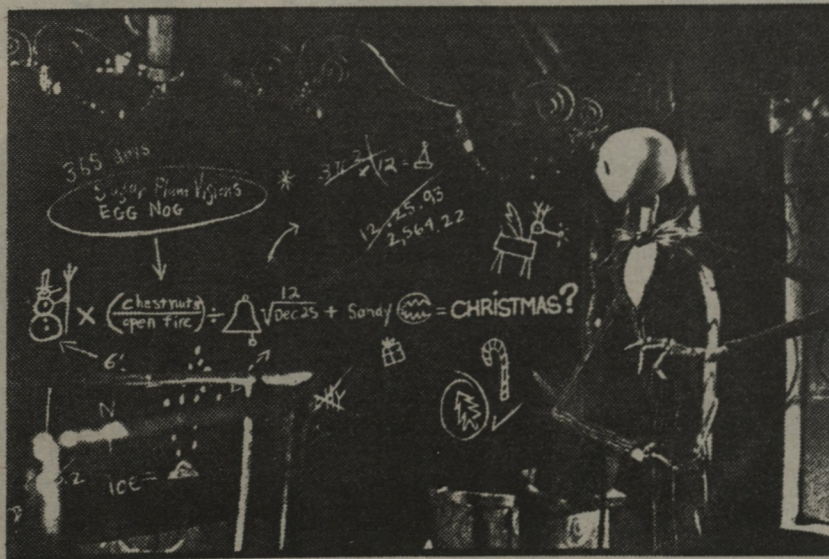 365 days
Sugar Plum Visions
EGG NOG
*
12 =
12 25.93
2,564.22
x (chestnuts/open fire) ÷ √12/Dec 25 + Sandy = CHRISTMAS?
6
N
ICE =